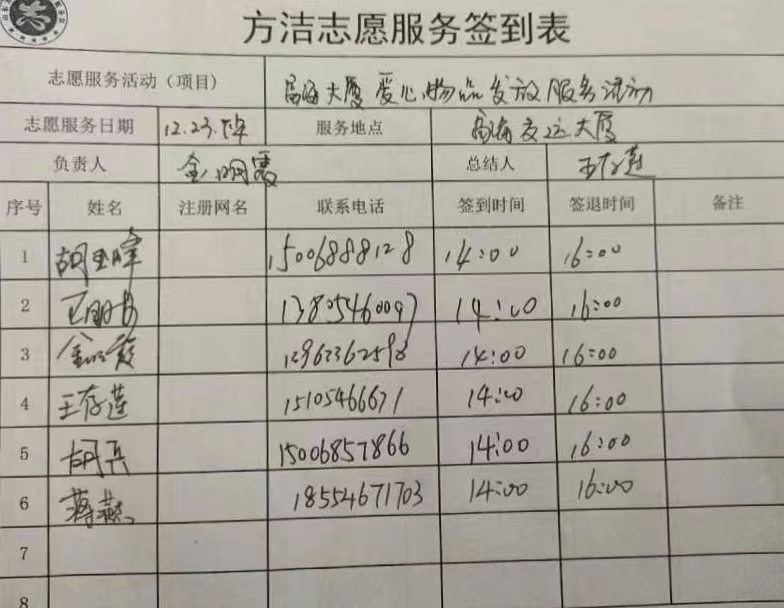 方洁志愿服务签到表
志愿服务活动（项目） 大厦爱心物品发放服务活动
志愿服务日期 12.23.下午 服务地点 大厦
负责人 金明霞 总结人 王存莲
序号 姓名 注册网名 联系电话 签到时间 签退时间 备注
1 胡玉峰 15006888128 14:00 16:00
2 13805460097 14:00 16:00
3 金明霞 14:00 16:00
4 王存莲 15105466671 14:00 16:00
5 胡兵 15006857866 14:00 16:00
6 蒋燕 18554671703 14:00 16:00
7
8